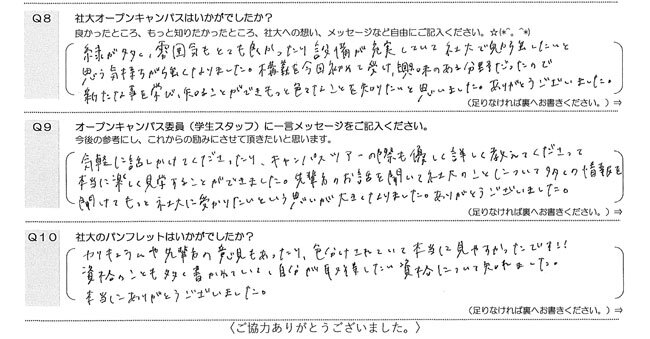 Q8 社大オープンキャンパスはいかがでしたか?
良かったところ、もっと知りたかったところ、社大への想い、メッセージなど自由にご記入ください。☆(*^。^*)
緑が多く、雰囲気もとても良かったり設備が充実していて社大で勉強したいと
思う気持ちが強くなりました。講義を今回初めて受け、興味のある分野だったので
新たな事を学び、知ることができもっと色々なことを知りたいと思いました。ありがとうございました。
(足りなければ裏へお書きください。)⇒
Q9 オープンキャンパス委員(学生スタッフ)に一言メッセージをご記入ください。
今後の参考にし、これからの励みにさせて頂きたいと思います。
気軽に話しかけてくださったり、キャンパスツアーの際も優しく詳しく教えてくださって
本当に楽しく見学することができました。先輩方のお話を聞いて社大のことについて多くの情報を
聞けてもっと社大に受かりたいという思いが大きくなりました。ありがとうございました。
(足りなければ裏へお書きください。)⇒
Q10 社大のパンフレットはいかがでしたか?
カリキュラムや先輩方の意見もあったり、色分けされていて本当に見やすかったです!!
資格のことも多く書かれていて自分が取得したい資格について知れました。
本当にありがとうございました。
(足りなければ裏へお書きください。)⇒
〈ご協力ありがとうございました。〉